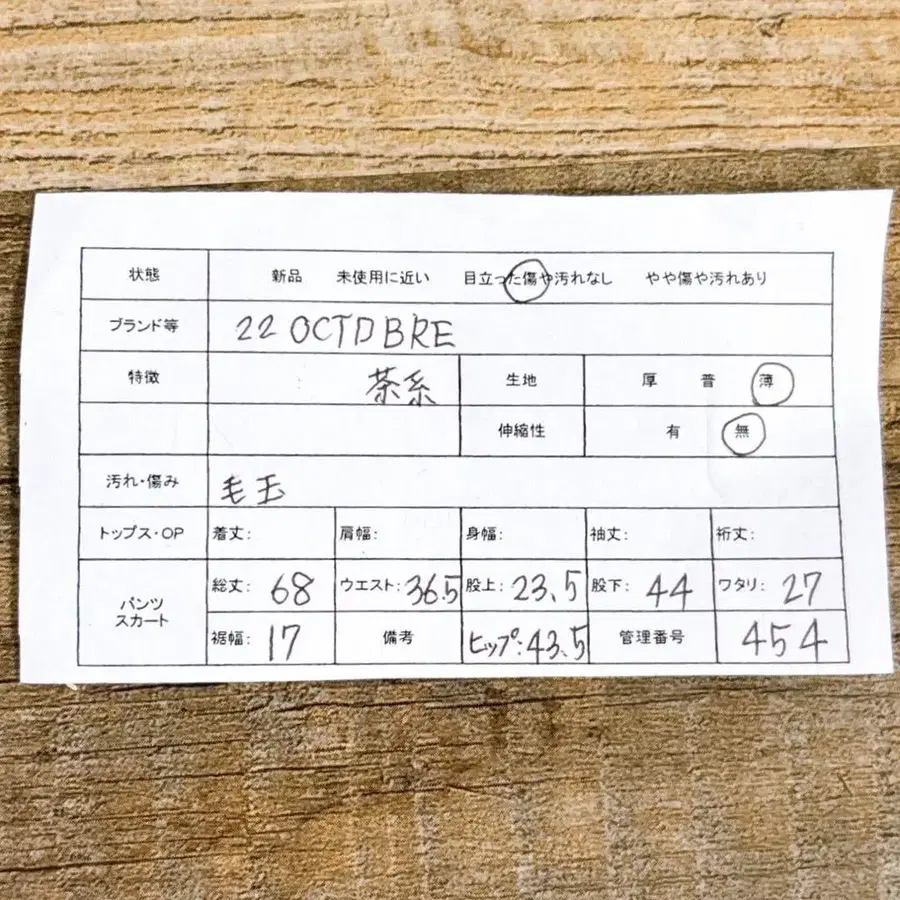 状態 新品 未使用に近い 目立った傷や汚れなし やや傷や汚れあり
ブランド等 22 OCTOBRE
特徴 茶系 生地 厚 普 薄
伸縮性 有 無
汚れ・傷み 毛玉
トップス・OP 着丈: 肩幅: 身幅: 袖丈: 裄丈:
パンツ スカート 総丈: 68 ウエスト: 36.5 股上: 23.5 股下: 44 ワタリ: 27
裾幅: 17 備考 ヒップ: 43.5 管理番号 454